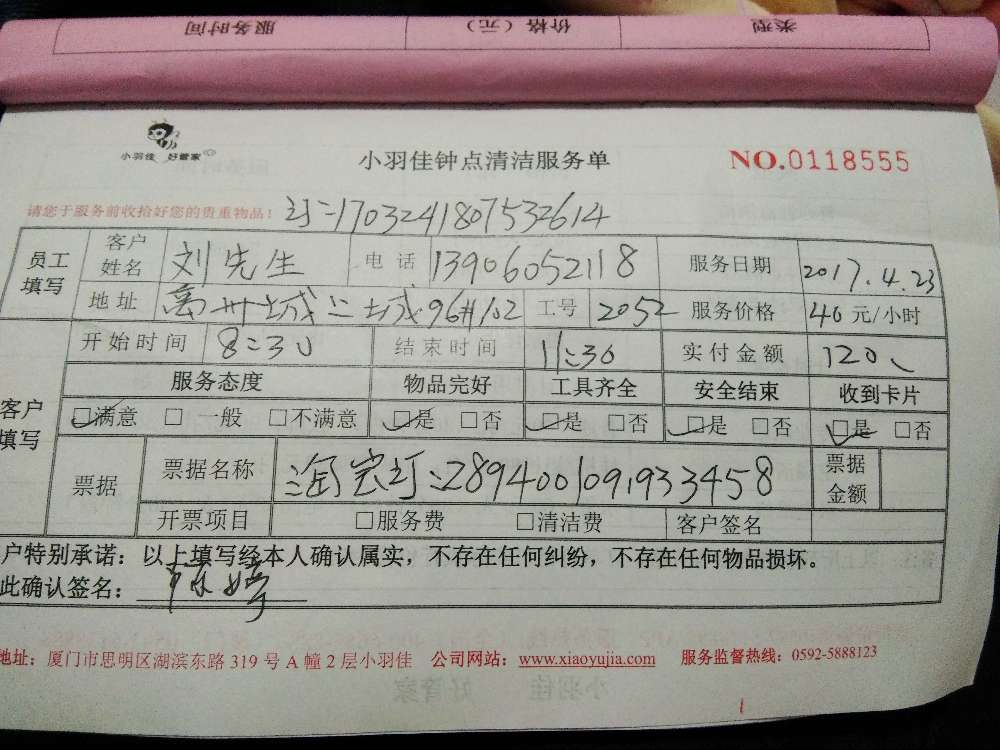 服务时间 价格（元） 类型
小羽佳 好管家
小羽佳钟点清洁服务单
NO.0118555
请您于服务前收拾好您的贵重物品！ 订:1703241807532614
员工填写 客户姓名 刘先生 电话 13906052118 服务日期 2017.4.23
地址 禹州城上城96#102 工号 2052 服务价格 40元/小时
客户填写 开始时间 8:30 结束时间 11:30 实付金额 120、
服务态度 物品完好 工具齐全 安全结束 收到卡片
☑满意 □一般 □不满意 ☑是 □否 ☑是 □否 ☑是 □否 ☑是 □否
票据 票据名称 淘宝订:2894001091933458 票据金额
开票项目 □服务费 □清洁费 客户签名
户特别承诺：以上填写经本人确认属实，不存在任何纠纷，不存在任何物品损坏。
此确认签名：
地址：厦门市思明区湖滨东路319号A幢2层小羽佳 公司网站：www.xiaoyujia.com 服务监督热线：0592-5888123
小羽佳 好管家